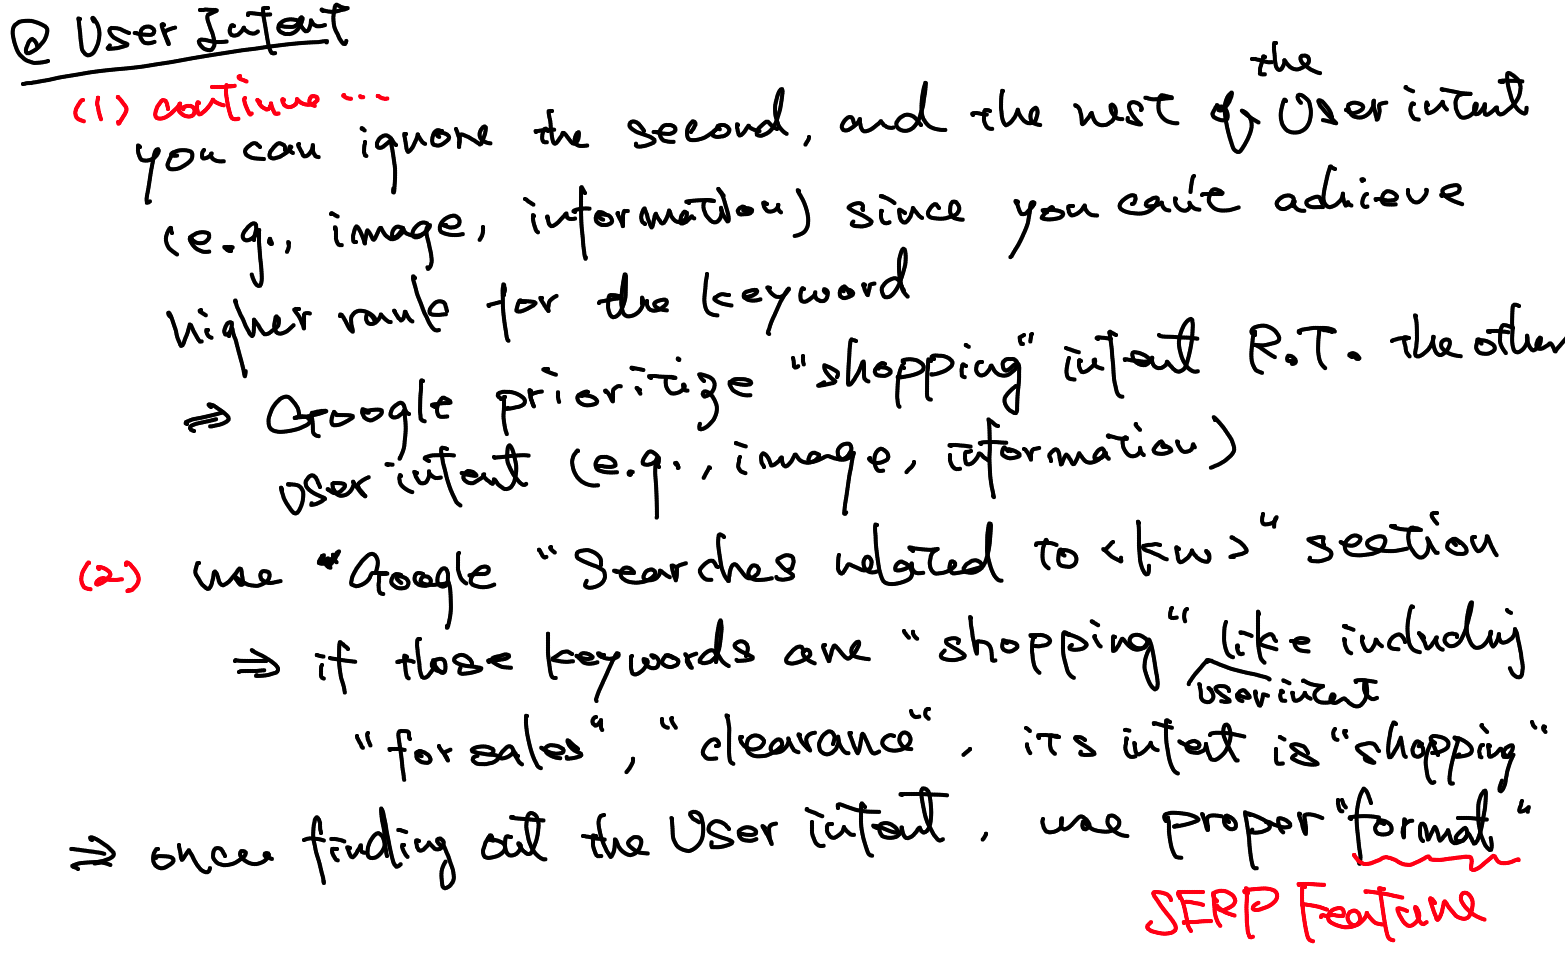 @ User Intent
(1) continue ...
you can ignore the second, and the rest of the User intent
(e.g., image, information) since you can't achieve
higher rank for the keyword
⇒ Google prioritize "shopping" intent R.T. the other
user intent (e.g., image, information)
(2) use "Google "Searches related to <kw>" section
⇒ if those keywords are "shopping" like including
user intent
"for sales", "clearance", its intent is "shopping"
⇒ once finding out the User intent, use proper "format"
SERP Feature